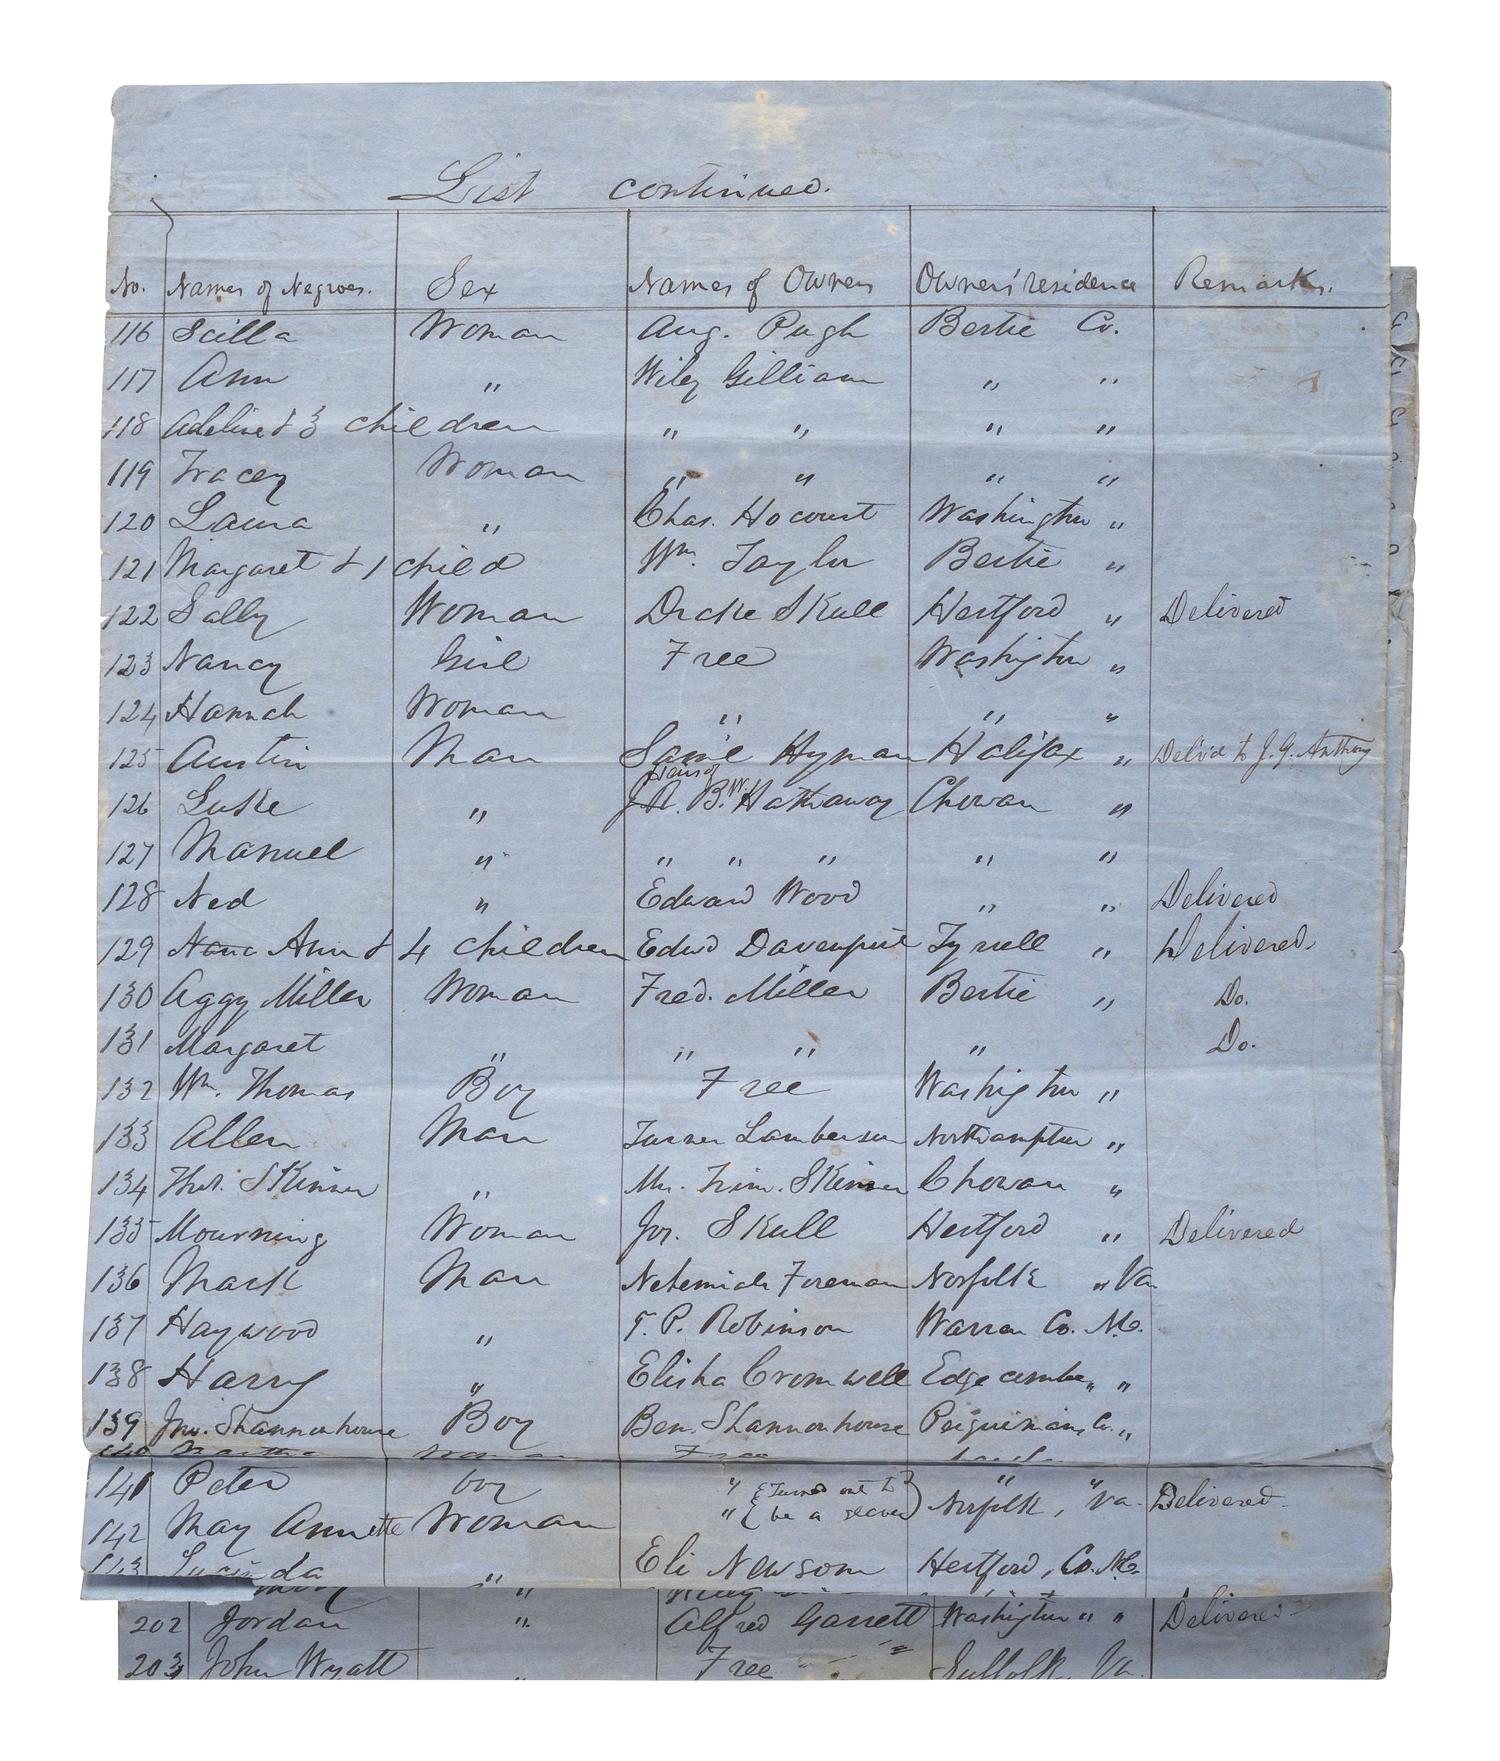 List continued.
No. Names of Negroes. Sex Names of Owners Owners' residence Remarks.
116 Scilla Woman Aug. Pugh Bertie Co.
117 Ann " Wiley Gilliam " "
118 Adeline & 3 children " " " "
119 Tracey Woman " " " "
120 Laura " Chas. Hocourt Washington "
121 Margaret & 1 child Wm. Taylor Bertie "
122 Sally Woman Drake Skull Hertford " Delivered
123 Nancy Girl Free Washington "
124 Hannah Woman " " "
125 Austin Man Sam'l Hyman Halifax " Deliv'd to J. G. Anthony
Heirs of
126 Luke " J. R. B. W. Hathaway Chowan "
127 Manuel " " " " " "
128 Ned " Edward Wood " " Delivered
129 Nana Ann & 4 children Edwd Davenport Tyrrell " Delivered
130 Aggy Miller Woman Fred. Miller Bertie " Do.
131 Margaret " " " " Do.
132 Wm. Thomas Boy Free Washington "
133 Allen Man Turner Lamberson Northampton "
134 Thos. Skinner " Skinner Chowan "
135 Mourning Woman Jos. Skull Hertford " Delivered
136 Mark Man Nehemiah Foreman Norfolk " Va
137 Haywood " T. P. Robinson Warren Co. N.C.
138 Harry " Elisha Cromwell Edgecombe " "
139 Jno. Shannonhouse Boy Ben. Shannonhouse Perquimans Co. "
140 Martha Woman Free
141 Peter boy " {Turned out to} " " Va. Delivered
142 May Annette Woman " {be a slave} Norfolk,
143 Lucinda " Eli Newsom Hertford, Co. N.C.
202 Jordan " Alfred Garrett Washington " " Delivered
203 John Wyatt " Free Suffolk, Va.